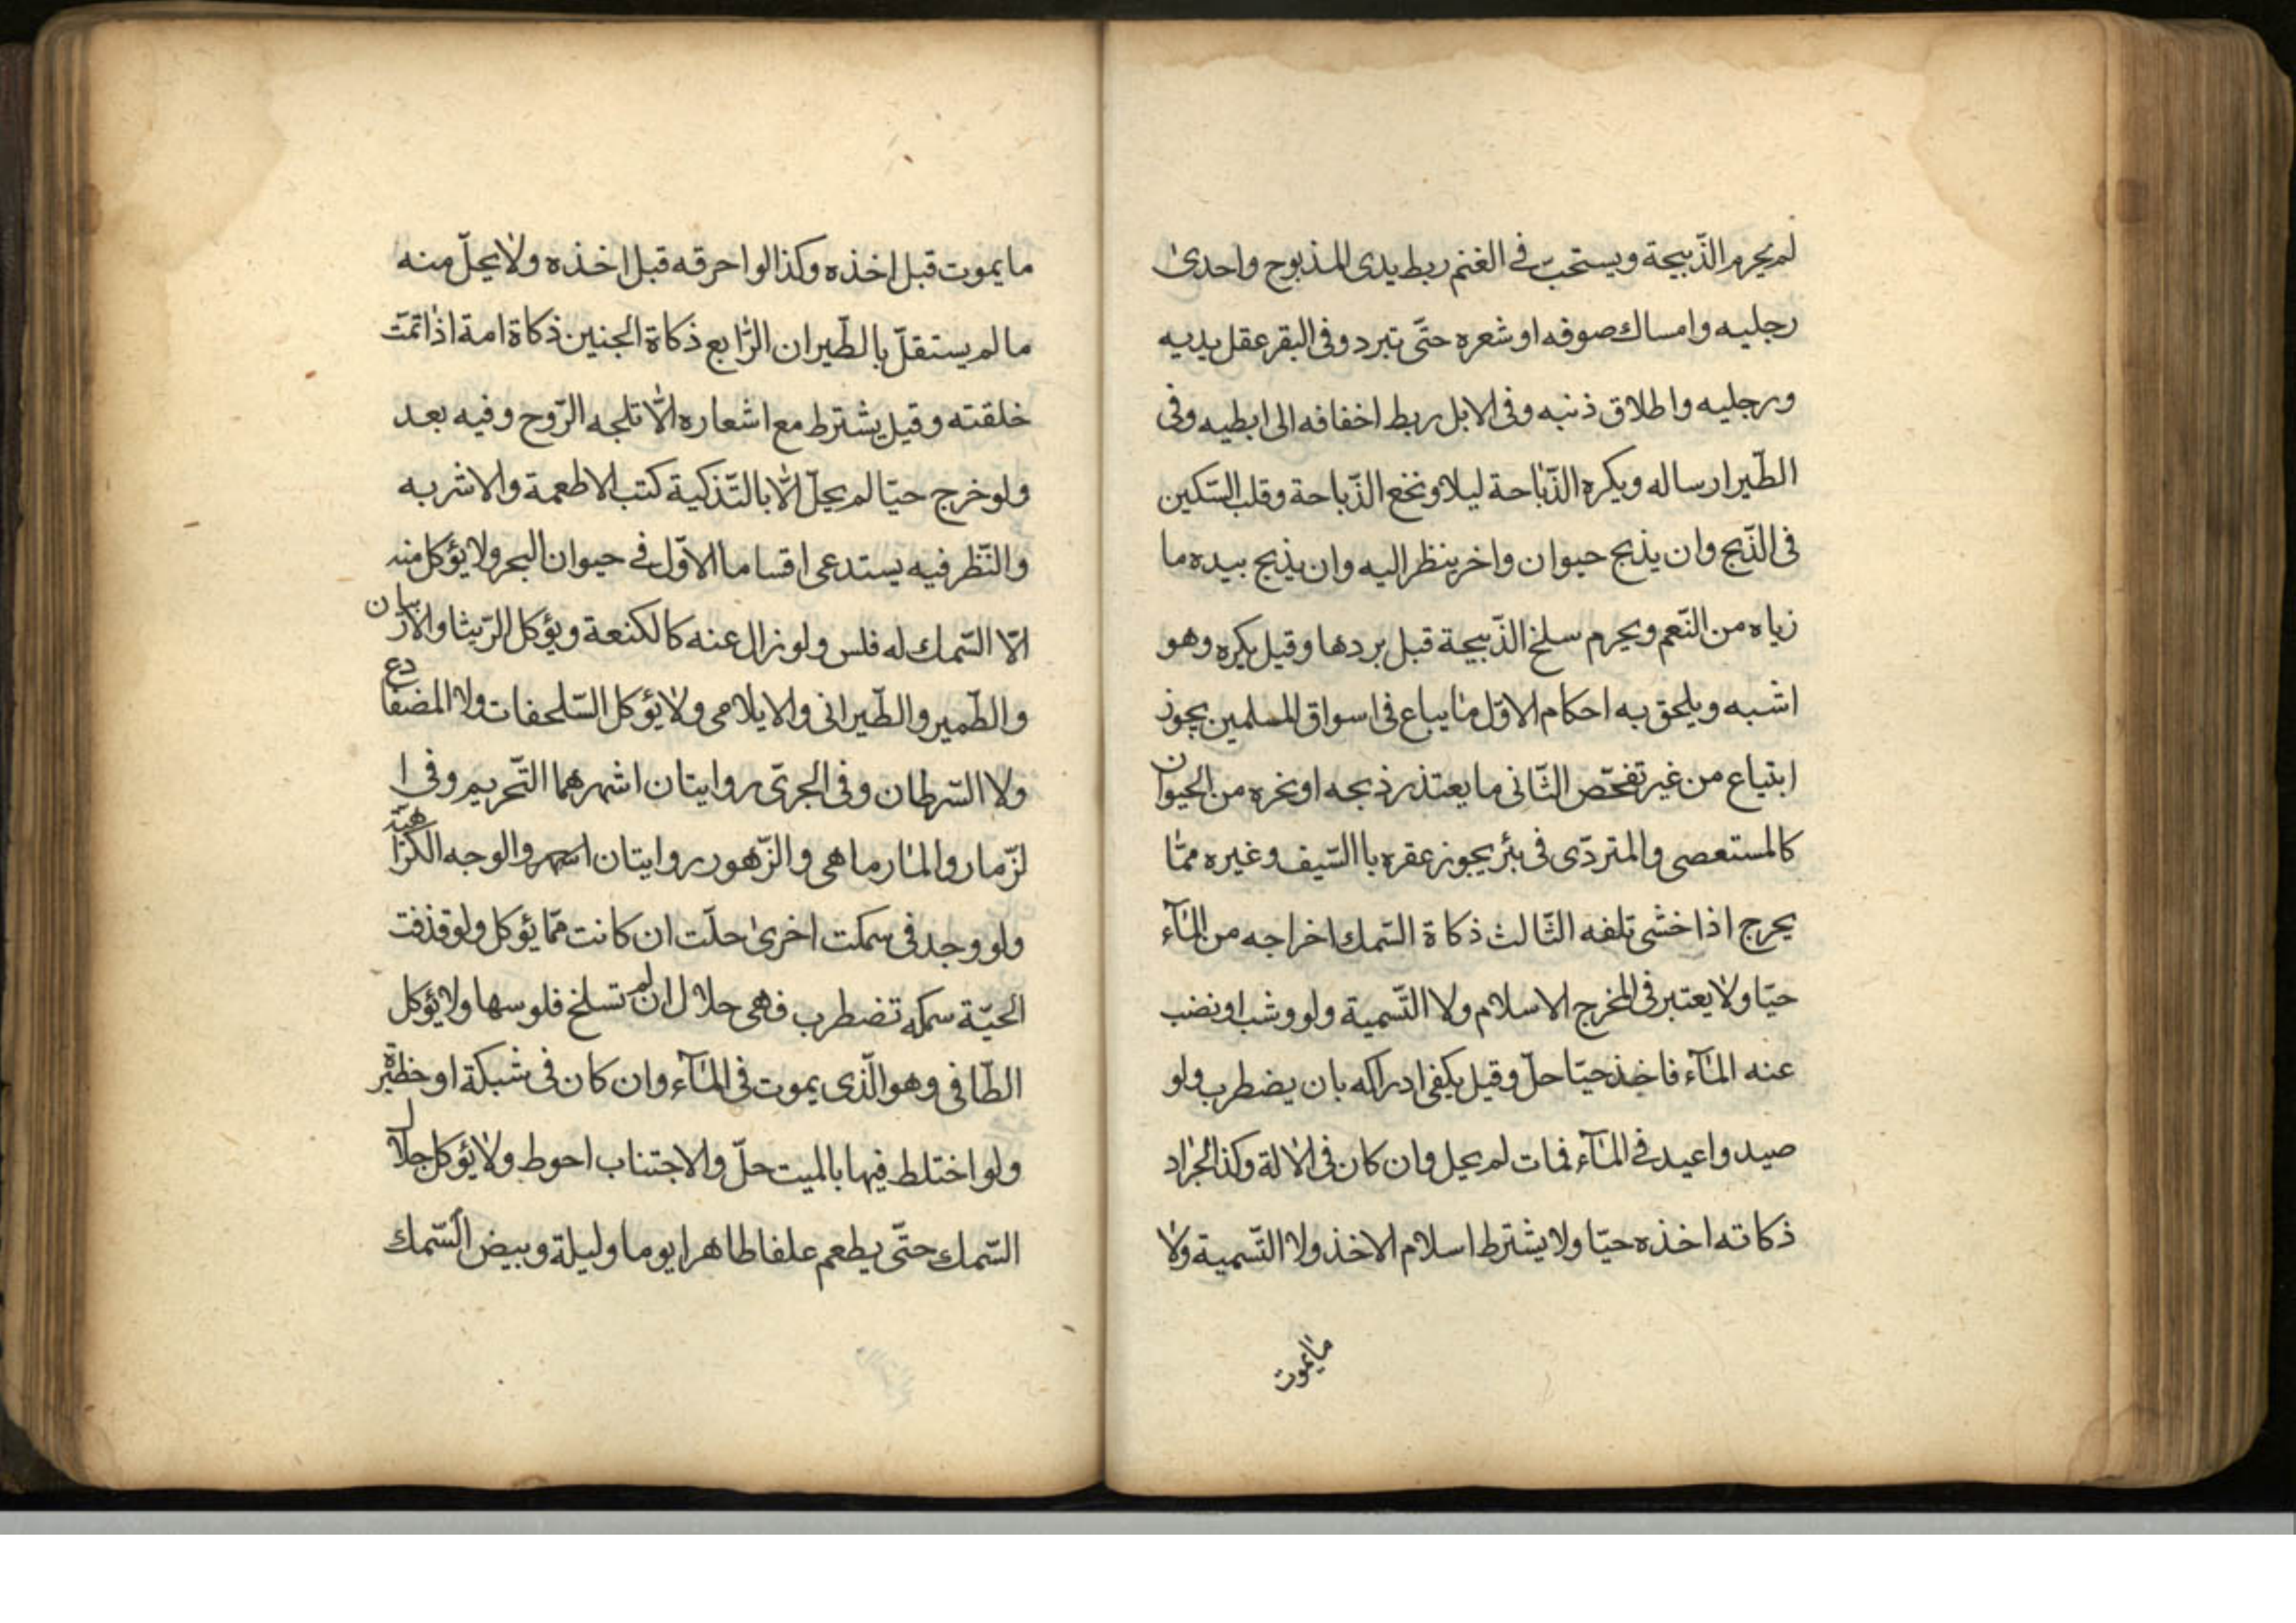 لم يحرم الذّبيحة ويستحبّ في الغنم ربط يدى المذبوح واحدى
رجليه وامساك صوفه او شعره حتّى تبرد وفى البقر عقل يديه
ورجليه واطلاق ذنبه وفى الابل ربط اخفافه الى ابطيه وفى
الطّير ارساله ويكره الذّباحة ليلا ونخع الذّباحة وقلب السّكين
فى الذّبح وان يذبح حيوان واخر ينظر اليه وان يذبح بيده ما
زباه من النّعم ويحرم سلخ الذّبيحة قبل بردها وقيل يكره وهو
اشبه ويلحق به احكام الاوّل ما يباع فى اسواق المسلمين يجوز
ابتياع من غير تفحّص الثّانى ما يعتذر ذبحه او نحره من الحيوان
كالمستعصى والمتردّى فى بئر يجوز عقره باالسّيف وغيره ممّا
يحرج اذا خشى تلفه الثّالث ذكاة السّمك اخراجه من المآء
حيّا ولا يعتبر فى المخرج الاسلام ولا التّسمية ولو وشب او نضب
عنه المآء فاخذ حيّا حلّ وقيل يكفى ادراكه بان يضطرب ولو
صيد واعيد فى المآء فمات لم يحل وان كان فى الالة وكذا الجراد
ذكاته اخذه حيّا ولا يشترط اسلام الاخذ ولا التّسمية ولا
ما يموت
ما يموت قبل اخذه وكذا لو احرقه قبل اخذه ولا يحلّ منه
ما لم يستقلّ بالطّيران الرّابع ذكاة الجنين ذكاة امة اذا تمّت
خلقته وقيل يشترط مع اشعاره الّا تلجه الرّوح وفيه بعد
ولو خرج حيّا لم يحلّ الّا بالتّذكية كتب الاطعمة والاشربه
والنّظر فيه يستدعى اقساما الاوّل في حيوان البحر ولا يؤكل منه
الّا السّمك له فلس ولو زال عنه كالكنعة ويؤكل الرّبيثا والاربيان
والطّمير والطّيرانى والايلامى ولا يؤكل السّلحفات ولا المضفادع
ولا السّرطان وفى الجرىّ روايتان اشهرهما التّحريم وفى ا
لزّمار والمارماهى والزّهور روايتان اشهر والوجه الكراهيّة
ولو وجد فى سمكت اخرى حلّت ان كانت ممّا يؤكل ولو قذفت
الحيّة سمكه تضطرب فهى حلال ان لم تسلخ فلوسها ولا يؤكل
الطّافى وهو الّذى يموت فى المآء وان كان فى شبكة او خظيرة
ولو اختلط فيها بالميت حلّ والاجتناب احوط ولا يؤكل جلال
السّمك حتّى يطعم علفا طاهرا يوما وليلة وبيض السّمك